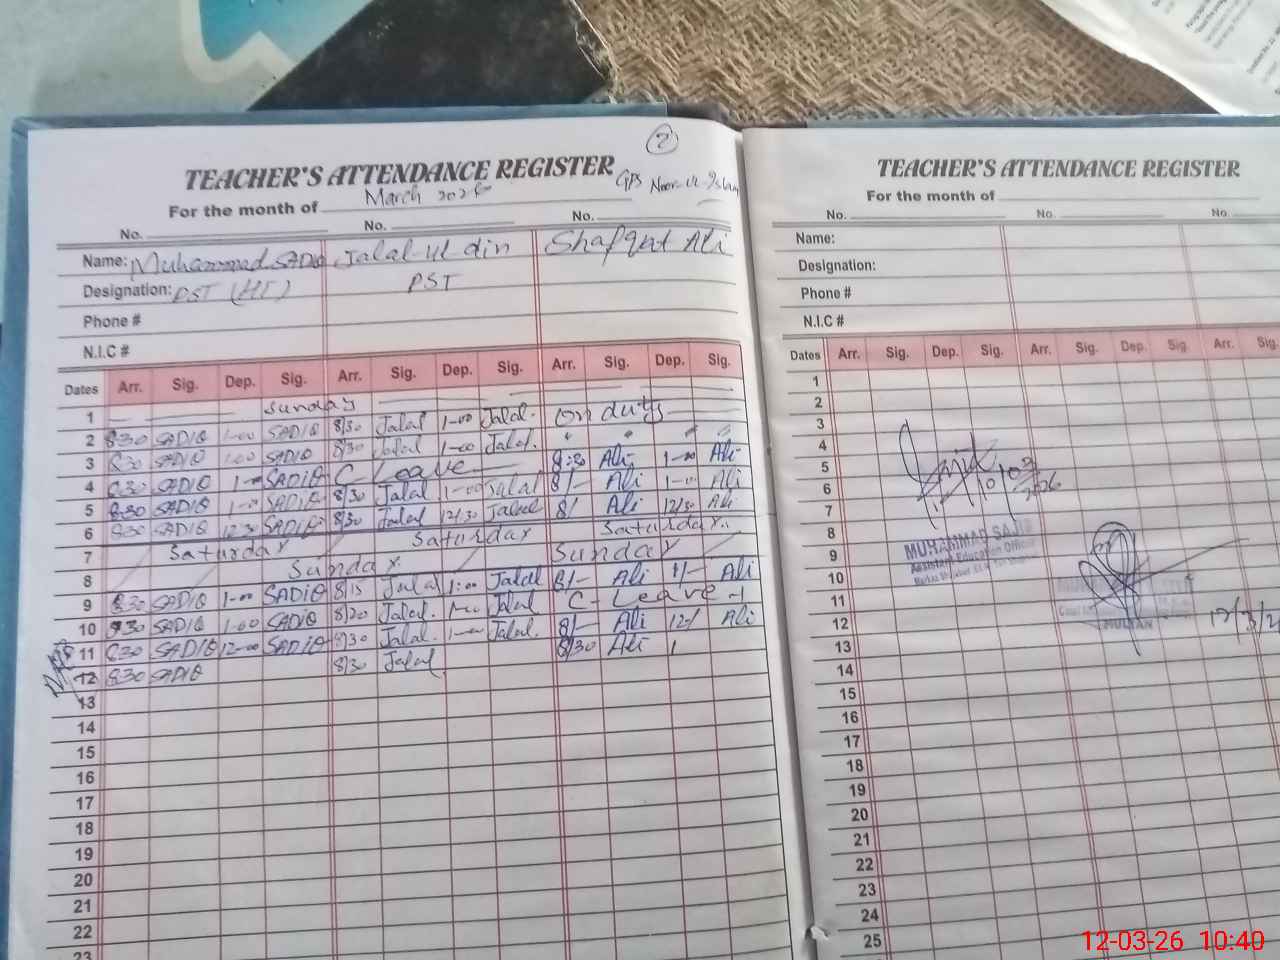 2
TEACHER'S ATTENDANCE REGISTER
GPS Noor-ul-Islam
For the month of March 2026
No. No. No.
Name: Muhammad SADIQ Jalal-ul-din Shafqat Ali
Designation: PST (HT) PST
Phone #
N.I.C #
Dates Arr. Sig. Dep. Sig. Arr. Sig. Dep. Sig. Arr. Sig. Dep. Sig.
1 Sunday
2 8:30 SADIQ 1-00 SADIQ 8/30 Jalal 1-00 Jalal. on duty
3 8:30 SADIQ 1:00 SADIQ 8/30 Jalal 1-00 Jalal. " " " "
4 8:30 SADIQ 1-00 SADIQ C Leave 8:30 Ali 1-00 Ali
5 8:30 SADIQ 1-00 SADIQ 8/30 Jalal 1-00 Jalal 8/- Ali 1-00 Ali
6 8:30 SADIQ 12:30 SADIQ 8/30 Jalal 12/30 Jalal 8/ Ali 12/30 Ali
7 Saturday Saturday Saturday
8 Sunday Sunday
9 8:30 SADIQ 1-00 SADIQ 8/15 Jalal 1:00 Jalal 8/- Ali 1/- Ali
10 8:30 SADIQ 1-00 SADIQ 8/20 Jalal. 1-00 Jalal C-Leave-1
11 8:30 SADIQ 12-00 SADIQ 8/30 Jalal. 1-00 Jalal. 8/- Ali 12/ Ali
12 8:30 SADIQ 8/30 Jalal 8/30 Ali 1
13
14
15
16
17
18
19
20
21
22
23
TEACHER'S ATTENDANCE REGISTER
For the month of
No. No. No.
Name:
Designation:
Phone #
N.I.C #
Dates Arr. Sig. Dep. Sig. Arr. Sig. Dep. Sig. Arr. Sig.
1
2
3
4
5
6
7
8
9
10
11
12
13
14
15
16
17
18
19
20
21
22
23
24
25
10/03/2026
MUHAMMAD SAJID
Assistant Education Officer
MULTAN
12/3/2
12-03-26 10:40